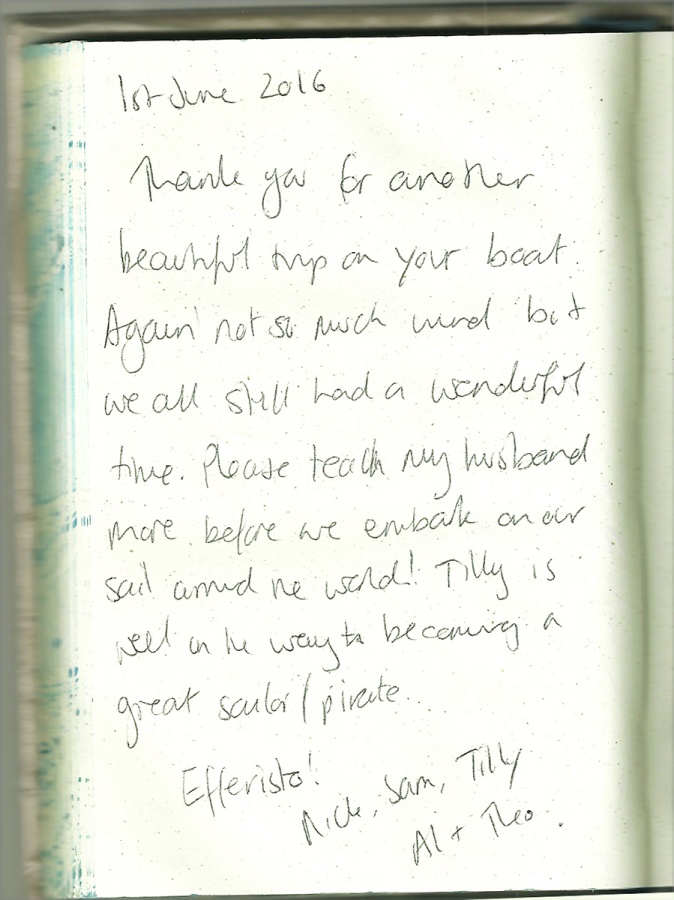 1st June 2016
Thank you for another
beautiful trip on your boat.
Again not so much wind but
we all still had a wonderful
time. Please teach my husband
more before we embark on our
sail around the world! Tilly is
well on the way to becoming a
great sailor/pirate.
Efferisto!
Nick, Sam, Tilly
Al + Theo.